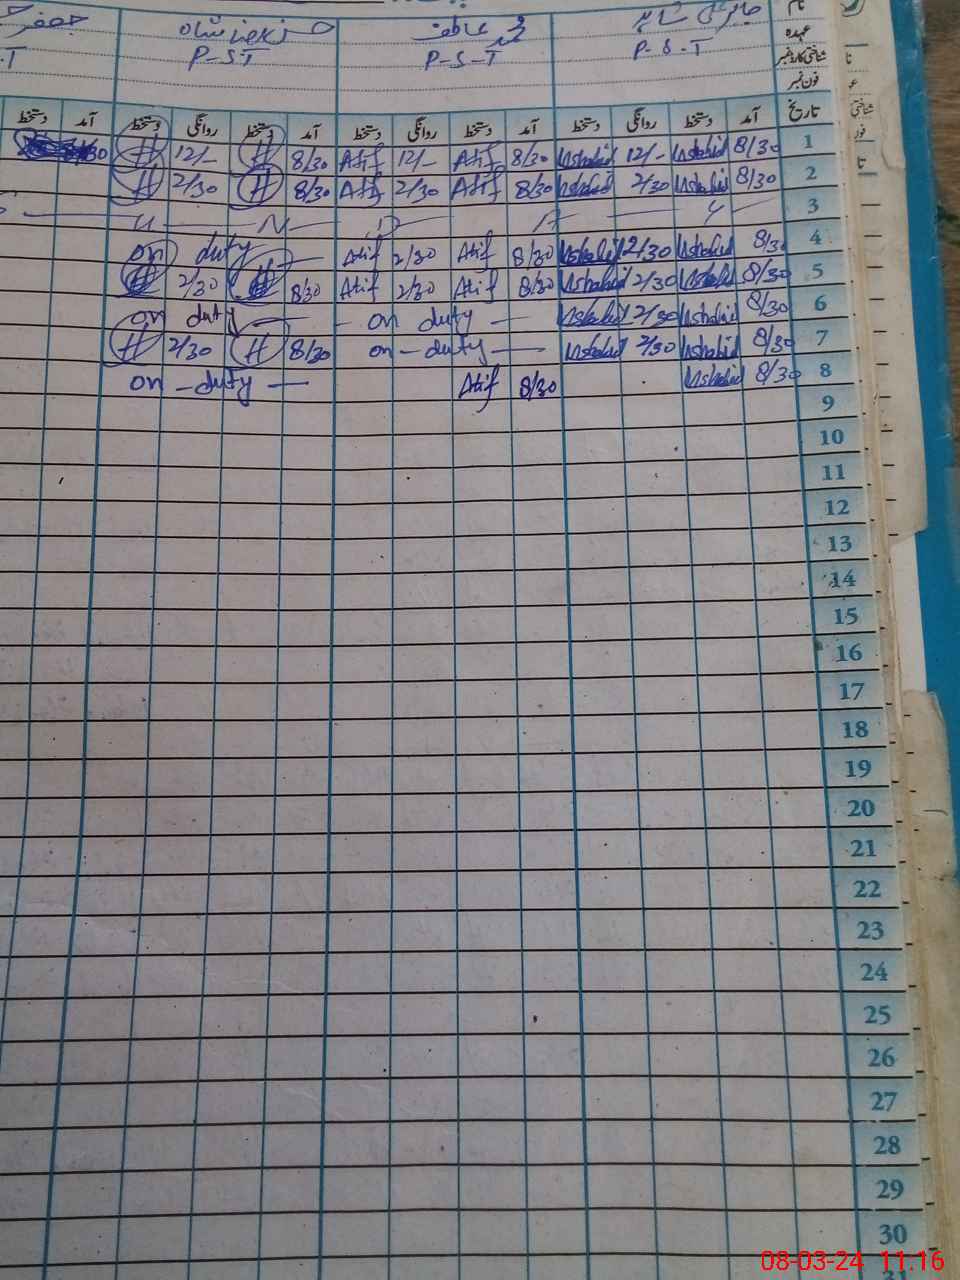 نام
عہدہ P-S-T P-S-T P-ST
شناختی کارڈ نمبر
فون نمبر
تاریخ آمد دستخط روانگی دستخط آمد دستخط روانگی دستخط آمد دستخط روانگی دستخط آمد دستخط
1 8/30 Mshahid 12/- Mshahid 8/30 Atif 12/- Atif 8/30 H 12/- H
2 8/30 Mshahid 2/30 Mshahid 8/30 Atif 2/30 Atif 8/30 H 2/30 H
3 S U N D A Y
4 8/30 Mshahid 2/30 Mshahid 8/30 Atif 2/30 Atif on duty
5 8/30 Mshahid 2/30 Mshahid 8/30 Atif 2/30 Atif 8/30 2/30
6 8/30 Mshahid 2/30 Mshahid on duty on duty
7 8/30 Mshahid 2/30 Mshahid on-duty 8/30 H 2/30 H
8 8/30 Mshahid 8/30 Atif on-duty
9
10
11
12
13
14
15
16
17
18
19
20
21
22
23
24
25
26
27
28
29
30
31
08-03-24 11:16